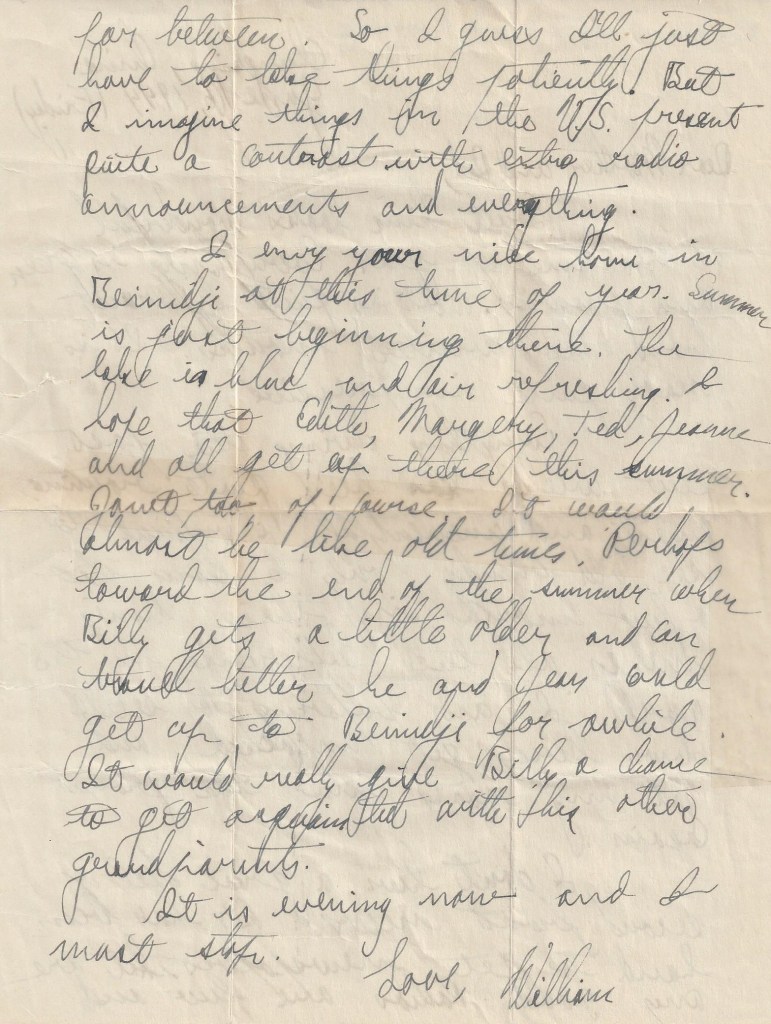 far between. So I guess I'll just
have to take things patiently. But
I imagine things in the U.S. present
quite a contrast with extra radio
announcements and everything.
I envy your nice home in
Bemidji at this time of year. Summer
is just beginning there. The
lake is blue and air refreshing. I
hope that Edith, Margery, Ted, Jeanne
and all get up there this summer.
Janet too, of course. It would
almost be like old times. Perhaps
toward the end of the summer when
Billy gets a little older and can
travel better he and Jean could
get up to Bemidji for awhile.
It would really give Billy a chance
to get acquainted with his other
grandparents.
It is evening now and I
must stop.
Love, William